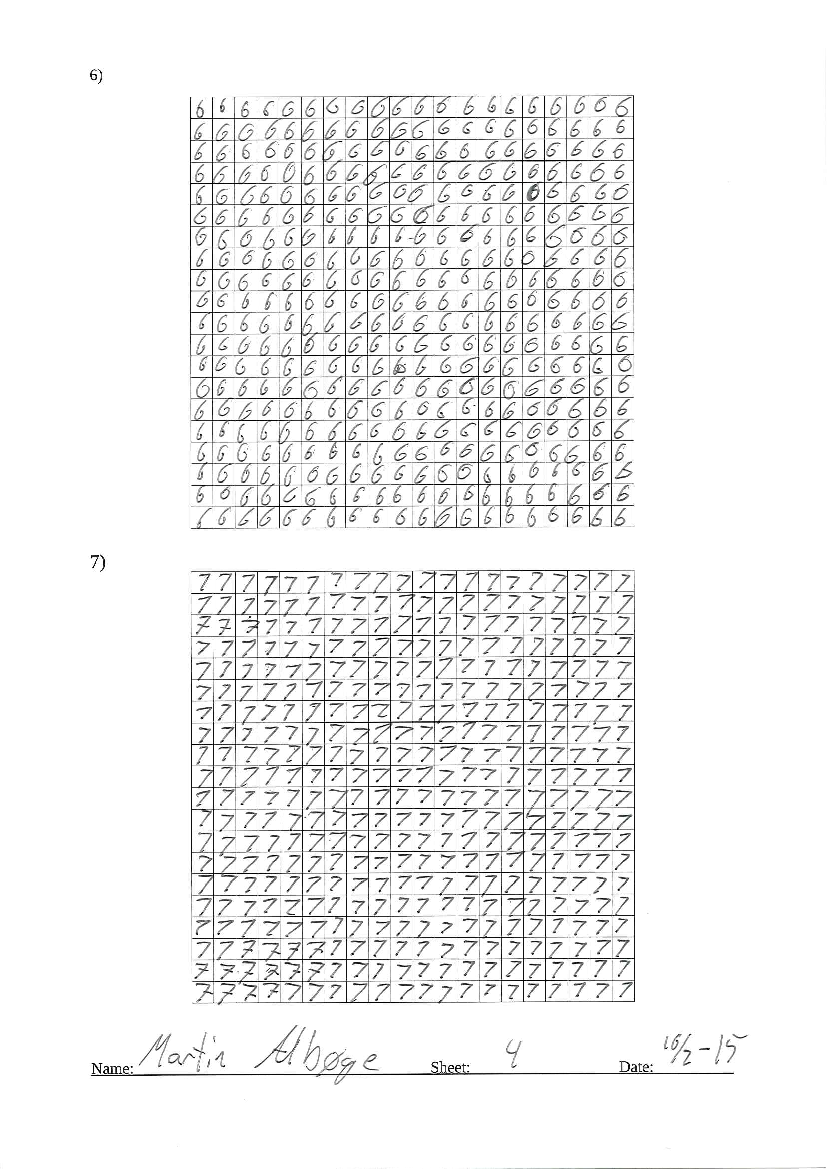 6)
6 6 6 6 6 6 6 6 6 6 6 6 6 6 6 6 6 6 6 6
6 6 6 6 6 6 6 6 6 6 6 6 6 6 6 6 6 6 6 6
6 6 6 6 6 6 6 6 6 6 6 6 6 6 6 6 6 6 6 6
6 6 6 6 6 6 6 6 6 6 6 6 6 6 6 6 6 6 6 6
6 6 6 6 6 6 6 6 6 6 6 6 6 6 6 6 6 6 6 6
6 6 6 6 6 6 6 6 6 6 6 6 6 6 6 6 6 6 6 6
6 6 6 6 6 6 6 6 6 6 6 6 6 6 6 6 6 6 6 6
6 6 6 6 6 6 6 6 6 6 6 6 6 6 6 6 6 6 6 6
6 6 6 6 6 6 6 6 6 6 6 6 6 6 6 6 6 6 6 6
6 6 6 6 6 6 6 6 6 6 6 6 6 6 6 6 6 6 6 6
6 6 6 6 6 6 6 6 6 6 6 6 6 6 6 6 6 6 6 6
6 6 6 6 6 6 6 6 6 6 6 6 6 6 6 6 6 6 6 6
6 6 6 6 6 6 6 6 6 6 6 6 6 6 6 6 6 6 6 6
6 6 6 6 6 6 6 6 6 6 6 6 6 6 6 6 6 6 6 6
6 6 6 6 6 6 6 6 6 6 6 6 6 6 6 6 6 6 6 6
6 6 6 6 6 6 6 6 6 6 6 6 6 6 6 6 6 6 6 6
6 6 6 6 6 6 6 6 6 6 6 6 6 6 6 6 6 6 6 6
6 6 6 6 6 6 6 6 6 6 6 6 6 6 6 6 6 6 6 6
6 6 6 6 6 6 6 6 6 6 6 6 6 6 6 6 6 6 6 6
6 6 6 6 6 6 6 6 6 6 6 6 6 6 6 6 6 6 6 6
7)
7 7 7 7 7 7 7 7 7 7 7 7 7 7 7 7 7 7 7 7
7 7 7 7 7 7 7 7 7 7 7 7 7 7 7 7 7 7 7 7
7 7 7 7 7 7 7 7 7 7 7 7 7 7 7 7 7 7 7 7
7 7 7 7 7 7 7 7 7 7 7 7 7 7 7 7 7 7 7 7
7 7 7 7 7 7 7 7 7 7 7 7 7 7 7 7 7 7 7 7
7 7 7 7 7 7 7 7 7 7 7 7 7 7 7 7 7 7 7 7
7 7 7 7 7 7 7 7 7 7 7 7 7 7 7 7 7 7 7 7
7 7 7 7 7 7 7 7 7 7 7 7 7 7 7 7 7 7 7 7
7 7 7 7 7 7 7 7 7 7 7 7 7 7 7 7 7 7 7 7
7 7 7 7 7 7 7 7 7 7 7 7 7 7 7 7 7 7 7 7
7 7 7 7 7 7 7 7 7 7 7 7 7 7 7 7 7 7 7 7
7 7 7 7 7 7 7 7 7 7 7 7 7 7 7 7 7 7 7 7
7 7 7 7 7 7 7 7 7 7 7 7 7 7 7 7 7 7 7 7
7 7 7 7 7 7 7 7 7 7 7 7 7 7 7 7 7 7 7 7
7 7 7 7 7 7 7 7 7 7 7 7 7 7 7 7 7 7 7 7
7 7 7 7 7 7 7 7 7 7 7 7 7 7 7 7 7 7 7 7
7 7 7 7 7 7 7 7 7 7 7 7 7 7 7 7 7 7 7 7
7 7 7 7 7 7 7 7 7 7 7 7 7 7 7 7 7 7 7 7
7 7 7 7 7 7 7 7 7 7 7 7 7 7 7 7 7 7 7 7
7 7 7 7 7 7 7 7 7 7 7 7 7 7 7 7 7 7 7 7
Name: Martin Albøge Sheet: 4 Date: 16/2-15